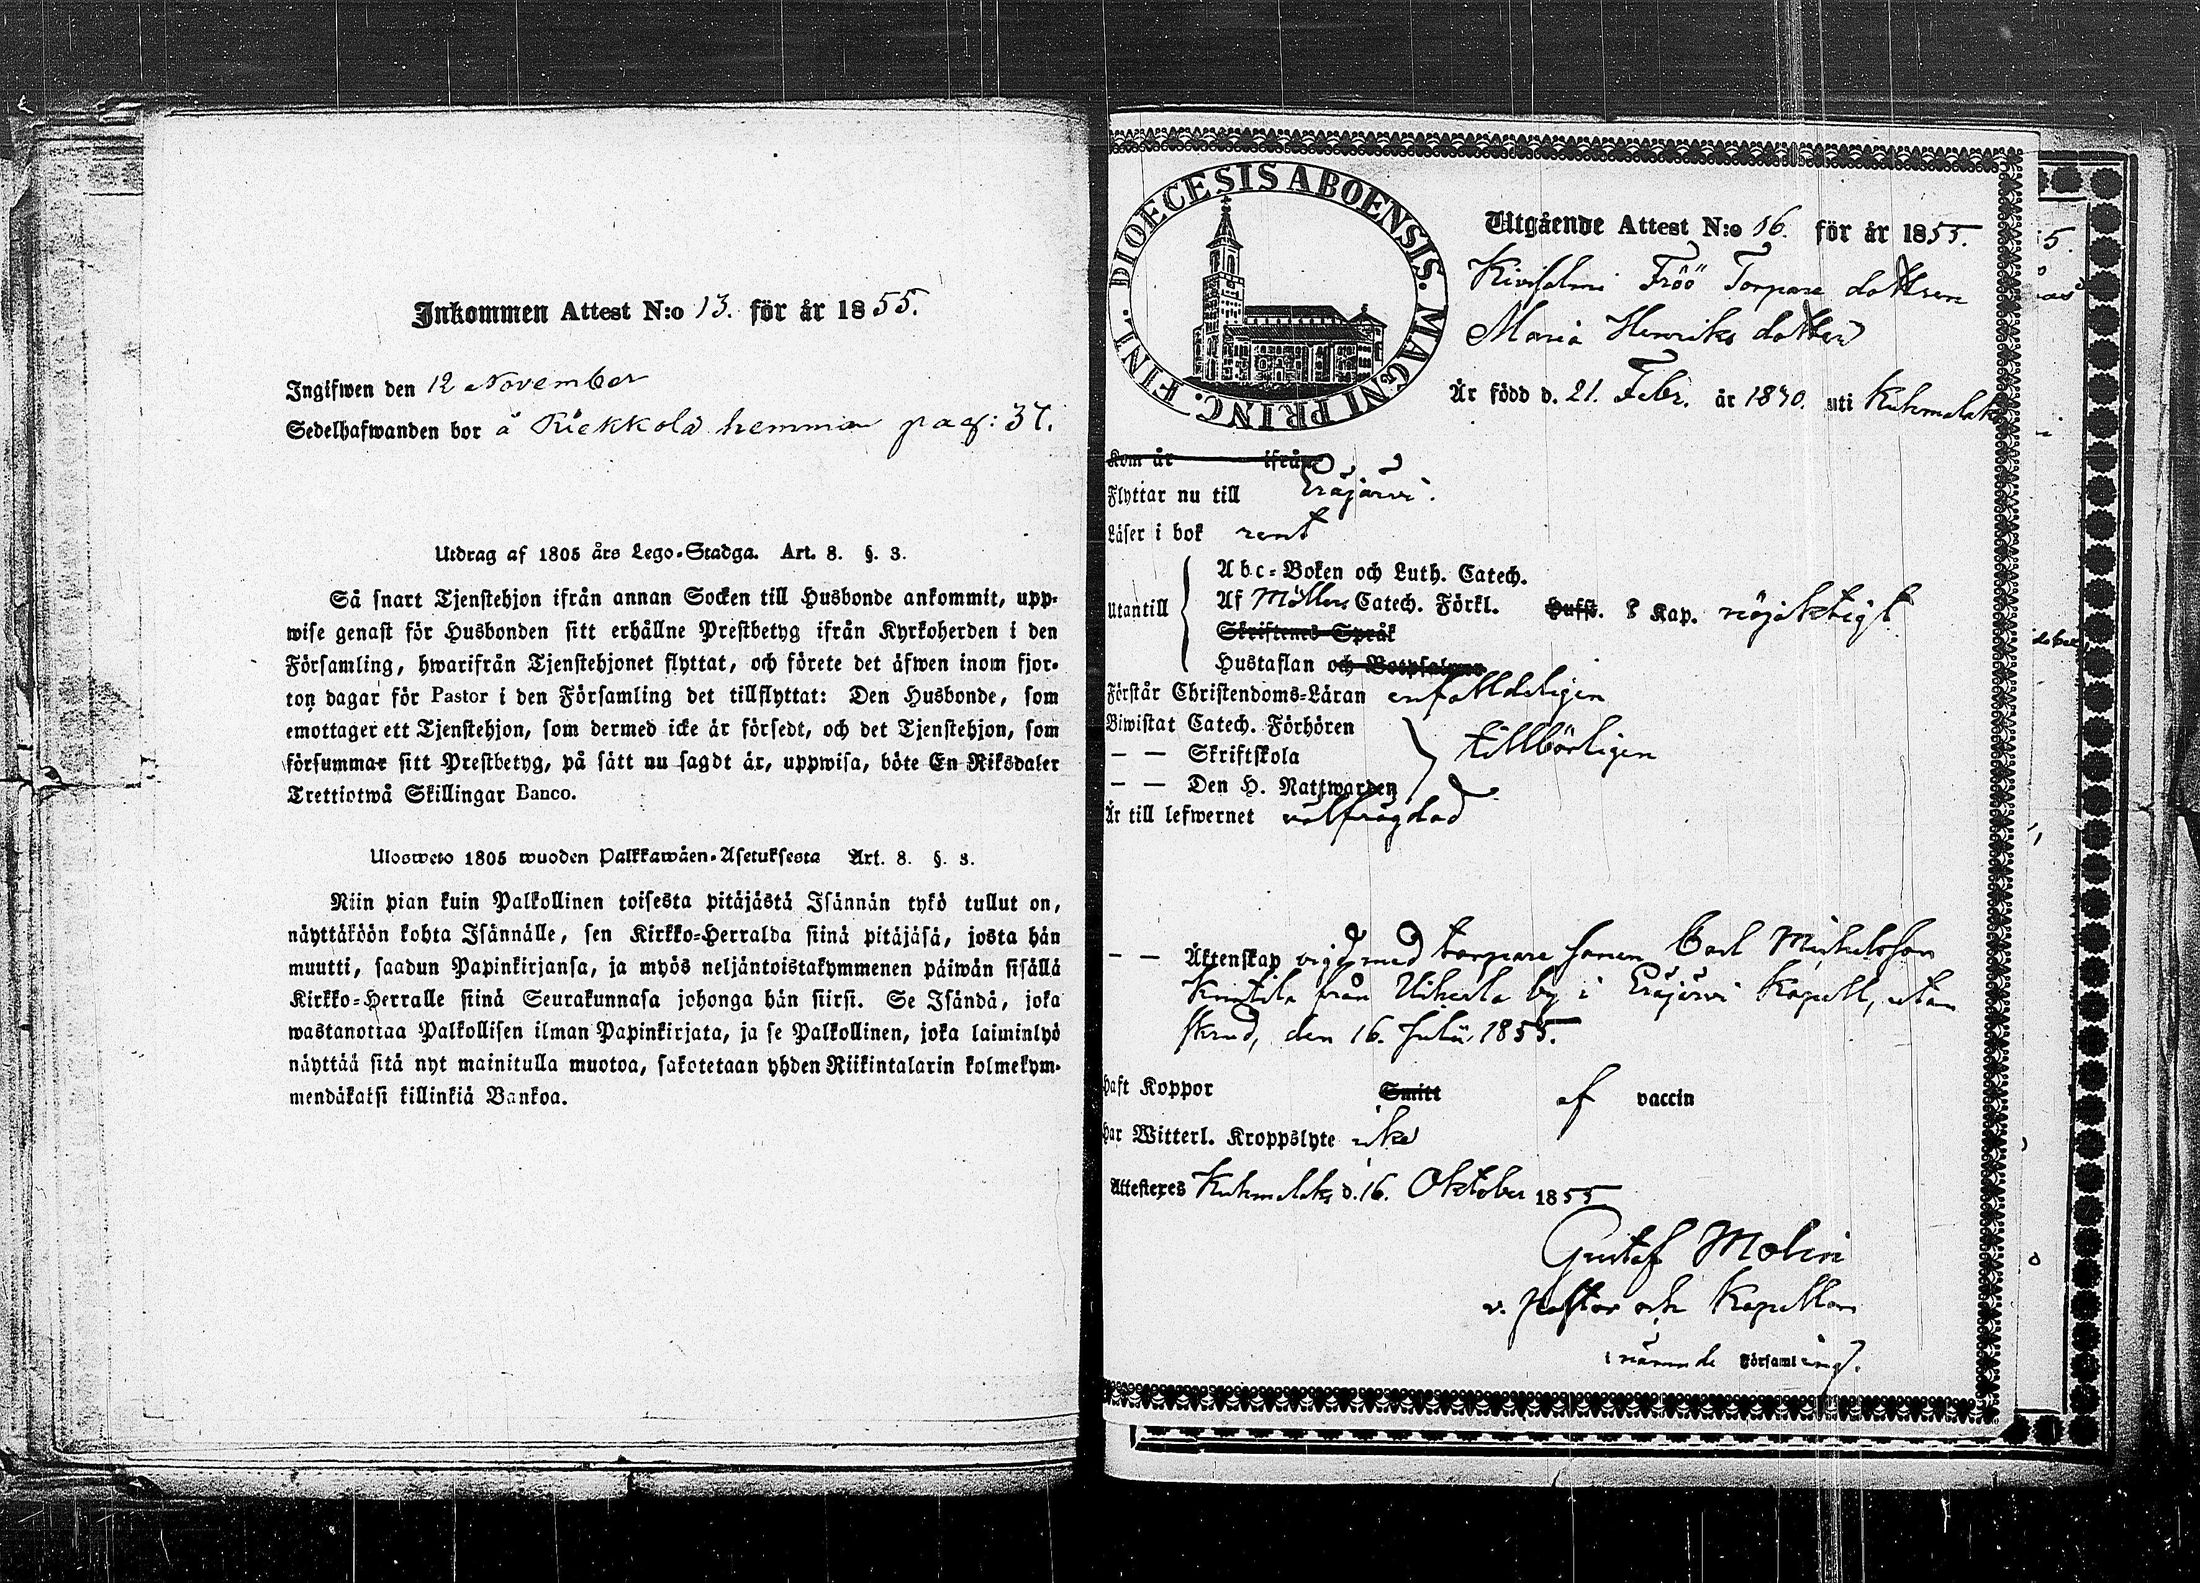 Inkommen Attest N:o 13. för år 1855.
Ingifwen den 12 November
Sedelhafwanden bor å Riekkola hemman pag: 37.
Utdrag af 1805 års Lego-Stadga. Art. 8. §. 3.
Så snart Tjenstehjon ifrån annan Socken till Husbonde ankommit, upp-
wise genast för Husbonden sitt erhållne Prestbetyg ifrån Kyrkoherden i den
Församling, hwarifrån Tjenstehjonet flyttat, och förete det äfwen inom fjor-
ton dagar för Pastor i den Församling det tillflyttat: Den Husbonde, som
emottager ett Tjenstehjon, som dermed icke är försedt, och det Tjenstehjon, som
försummar sitt Prestbetyg, på sätt nu sagdt är, uppwisa, böte En Riksdaler
Trettiotwå Skillingar Banco.
Ulosweto 1805 wuoden Palkkawäen-Asetuksesta Art. 8. §. 3.
Niin pian kuin Palkollinen toisesta pitäjästä Isännän tykö tullut on,
näyttäköön kohta Isännälle, sen Kirkko-Herralda siinä pitäjäsä, josta hän
muutti, saadun Papinkirjansa, ja myös neljäntoistakymmenen päiwän sisällä
Kirkko-Herralle siinä Seurakunnasa johonga hän siirsi. Se Isändä, joka
wastanottaa Palkollisen ilman Papinkirjata, ja se Palkollinen, joka laiminlyö
näyttää sitä nyt mainitulla muotoa, sakotetaan yhden Riikintalarin kolmekym-
mendäkatsi killinkiä Bankoa.
DIOECESIS ABOENSIS. MAGNI PRINC. FINL.
Utgående Attest N:o 16. för år 1855.
Torpare dottren
Maria Henriks dotter
Är född d. 21. Febr. år 1830. uti Kuhmalaks
Kom år ifrån
Flyttar nu till Eräjärvi.
Läser i bok rent
Utantill
Abc-Boken och Luth. Catech.
Af Möllers Catech. Förkl. Husst. 8 Kap. nöjaktigt
Skriftenes Språk
Hustaflan och Botpsalmen
Förstår Christendoms-Läran enfalldeligen
Biwistat Catech. Förhören
— — Skriftskola tillbörligen
— — Den H. Nattwarden
Är till lefwernet välfrägdad
— — Äktenskap vigd med torpare sonen Carl Michelsson
från by i Eräjärvi Kapell, utan
skrud, den 16. Julii, 1855.
haft Koppor Smitt af vaccin
har Witterl. Kroppslyte icke
Attesteres Kuhmalaks d. 16. Oktober 1855
Gustaf Molin
v. Pastor och Kapellan
i nämnde Församling.